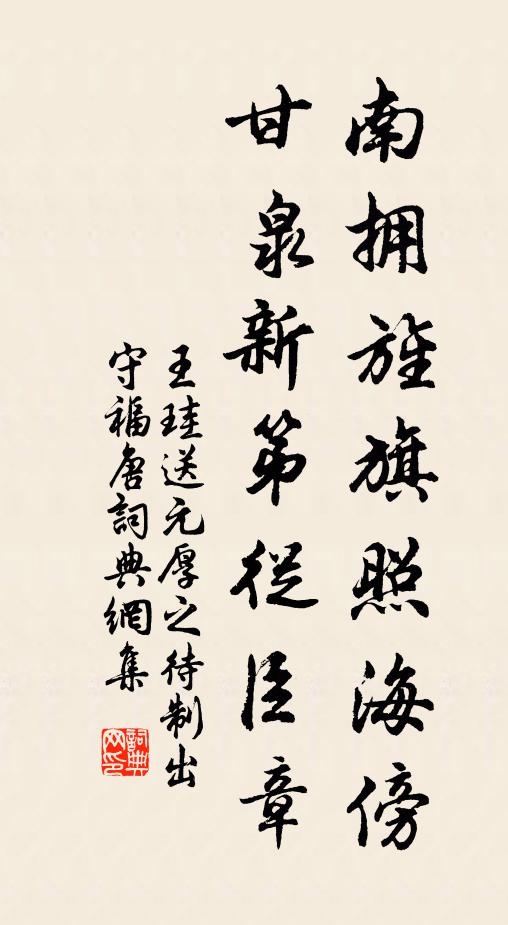 南拥旌旗照海傍
甘泉新第從臣章
王珪送元厚之待制出
守福唐詞典網集
詞典
网印